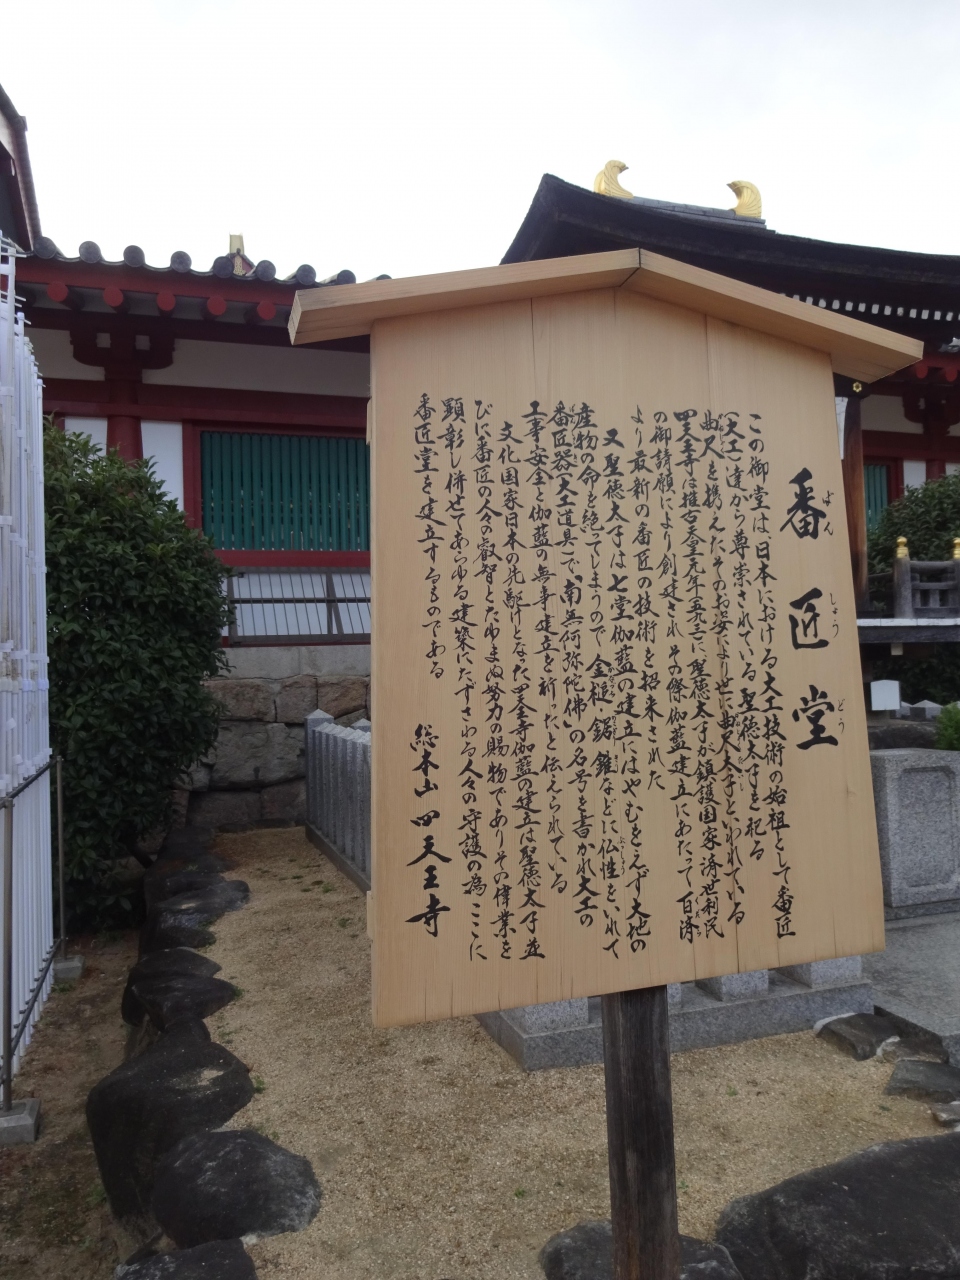 番匠堂
ばん
しょう
どう
この御堂は、日本における大工技術の始祖として番匠
(大工)達から尊崇されている聖徳太子を祀る
曲尺を携えたそのお姿により世に曲尺太子といわれている
四天王寺は推古天皇元年(五九三)に聖徳太子が鎮護国家済世利民
の御請願により創建されその際伽藍建立にあたって百済
より最新の番匠の技術を招来された
又聖徳太子は七堂伽藍の建立にはやむをえず大地の
産物の命を絶ってしまうので金槌鋸錐などに仏性をいれて
番匠器(大工道具)で「南無阿弥陀佛」の名号を書かれ大工の
工事安全と伽藍の無事建立を祈ったと伝えられている
文化国家日本の先駆けとなった四天王寺伽藍の建立は聖徳太子並
びに番匠の人々の叡智とたゆまぬ努力の賜物でありその偉業を
顕彰し併せてあらゆる建築にたずさわる人々の守護の為ここに
番匠堂を建立するものである
総本山四天王寺